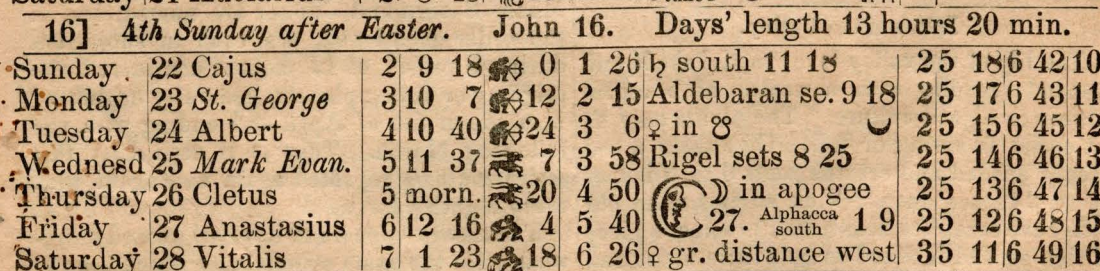 16] 4th Sunday after Easter. John 16. Days' length 13 hours 20 min.
Sunday . 22 Cajus 2 9 18 0 1 26 ♄ south 11 18 2 5 18 6 42 10
Monday 23 St. George 3 10 7 12 2 15 Aldebaran se. 9 18 2 5 17 6 43 11
Tuesday 24 Albert 4 10 40 24 3 6 ♀ in ☋ 2 5 15 6 45 12
Wednesd 25 Mark Evan. 5 11 37 7 3 58 Rigel sets 8 25 2 5 14 6 46 13
Thursday 26 Cletus 5 morn. 20 4 50 ☽ in apogee 2 5 13 6 47 14
Friday 27 Anastasius 6 12 16 4 5 40 27. Alphacca south 1 9 2 5 12 6 48 15
Saturday 28 Vitalis 7 1 23 18 6 26 ♀ gr. distance west 3 5 11 6 49 16